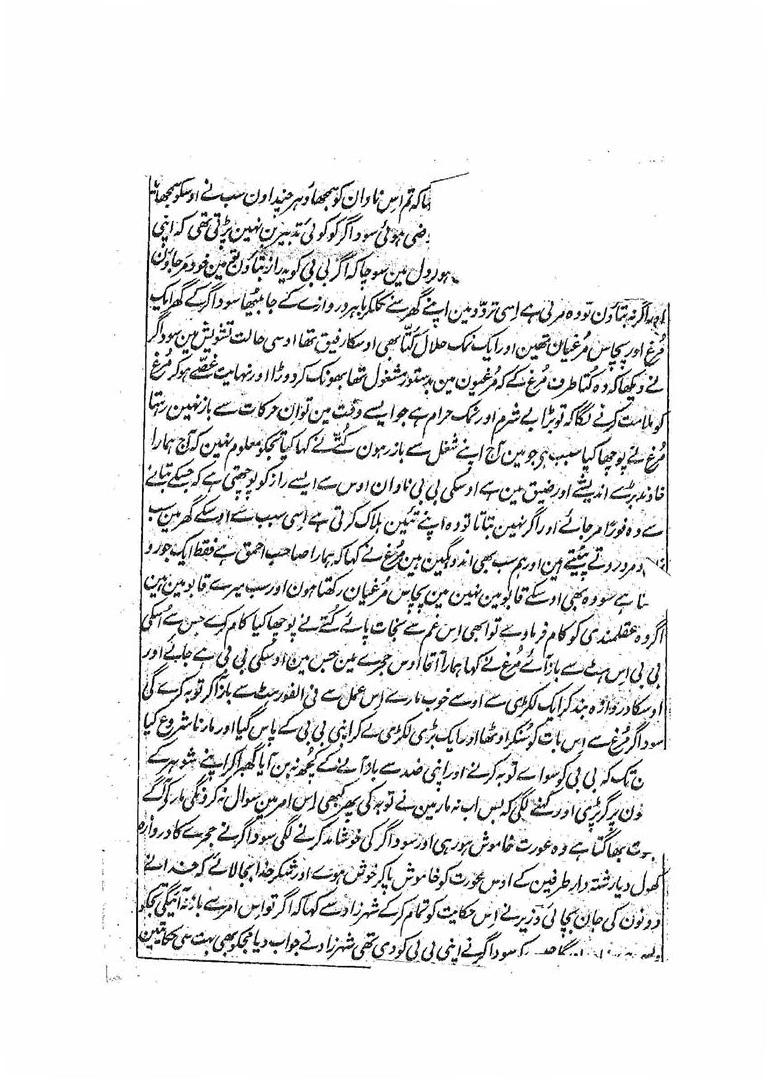 کہا کہ تم اس نادان کو سمجھاؤ ہر چند اون سب نے اوسکو سمجھایا
ضی ہوئی سوداگر کو کوئی تدبیر بن نہین پڑتی تھی کہ اپنی
ہو دل مین سوچا کہ اگر بی بی کو یہ راز بتاؤن تو مین خود مر جاؤن
اور اگر نہ بتاؤن تو وہ مرتی ہے اسی تردد مین اپنے گھر سے نکلکر باہر دروازے کے جا بیٹھا سوداگر کے گھر ایک
مُرغ اور پچاس مرغیان تھین اور ایک نمک حلال کتّا بھی اوسکا رفیق تھا اوسی حالت تشویش مین سوداگر
نے دیکھا کہ وہ کتا طرف مُرغ کے کہ مرغیون مین بدستور مشغول تھا بھونک کر دوڑا اور نہایت غصّے ہو کہ مُرغ
کو ملامت کرنے لگا کہ تو بڑا بے شرم اور نمک حرام ہے جو ایسے وقت مین تو ان حرکات سے باز نہین رہتا
مُرغ نے پوچھا کیا سبب ہی جو مین آج اپنے شغل سے باز رہون کُتّے نے کہا کیا تجکو معلوم نہین کہ آج ہمارا
خاوند بڑے اندیشے اور ضیق مین ہے اوسکی بی بی نادان اوس سے ایسے راز کو پوچھتی ہے کہ جسکے بتانے
سے وہ فوراً مر جائے اور اگر نہین بتاتا تو وہ اپنے تئین ہلاک کرتی ہے اسی سبب سے اوسکے گھر مین سب
و مرد روتے پیٹتے ہین اور ہم سب بھی اندوہگین ہین مُرغ نے کہا کہ ہمارا صاحب احمق ہے فقط ایک جورو
تا ہے سو وہ بھی اوسکے قابو مین نہین مین پچاس مُرغیان رکھتا ہون اور سب میرے قابو مین ہین
اگر وہ عقلمندی کو کام فرماوے تو ابھی اس غم سے نجات پائے کتے نے پوچھا کیا کام کرے جس سے اُسکی
بی بی اس ہٹ سے باز آئے مُرغ نے کہا ہمارا آقا اوس حجرے مین جس مین اوسکی بی بی ہے جائے اور
اوسکا دروازہ بند کر ایک لکڑی سے اوسے خوب مارے اس عمل سے فی الفور ہٹ سے باز آکر توبہ کرے گی
سوداگر مُرغ سے اس بات کو سُنکر اوٹھا اور ایک بڑی لکڑی لے کر اپنی بی بی کے پاس گیا اور مارنا شروع کیا
ن تک کہ بی بی کو سوا ے توبہ کرنے اور اپنی ضد سے باز آنے کے کچھ نہ بن آیا گھبرا کر اپنے شوہر کے
ؤن پر گر پڑی اور کہنے لگی کہ بس اب نہ مار مین نے توبہ کی پھر کبھی اس امر مین سوال نہ کرونگی مار کے آگے
بھوت بھاگتا ہے وہ عورت خاموش ہو رہی اور سوداگر کی خوشامد کرنے لگی سوداگر نے حجرے کا دروازہ
کھول دیا رشتہ دار طرفین کے اوس عورت کو خاموش پا کر خوش ہوے اور شکر خدا بجا لائے کہ خدا نے
دونون کی جان بچائی وزیر نے اس حکایت کو تمام کر کے شہرزاد سے کہا کہ اگر تو اس امر سے باز نہ آئیگی تجکو
سوداگر نے اپنی بی بی کو دی تھی شہرزاد نے جواب دیا مجکو بھی بہت سی حکایتین